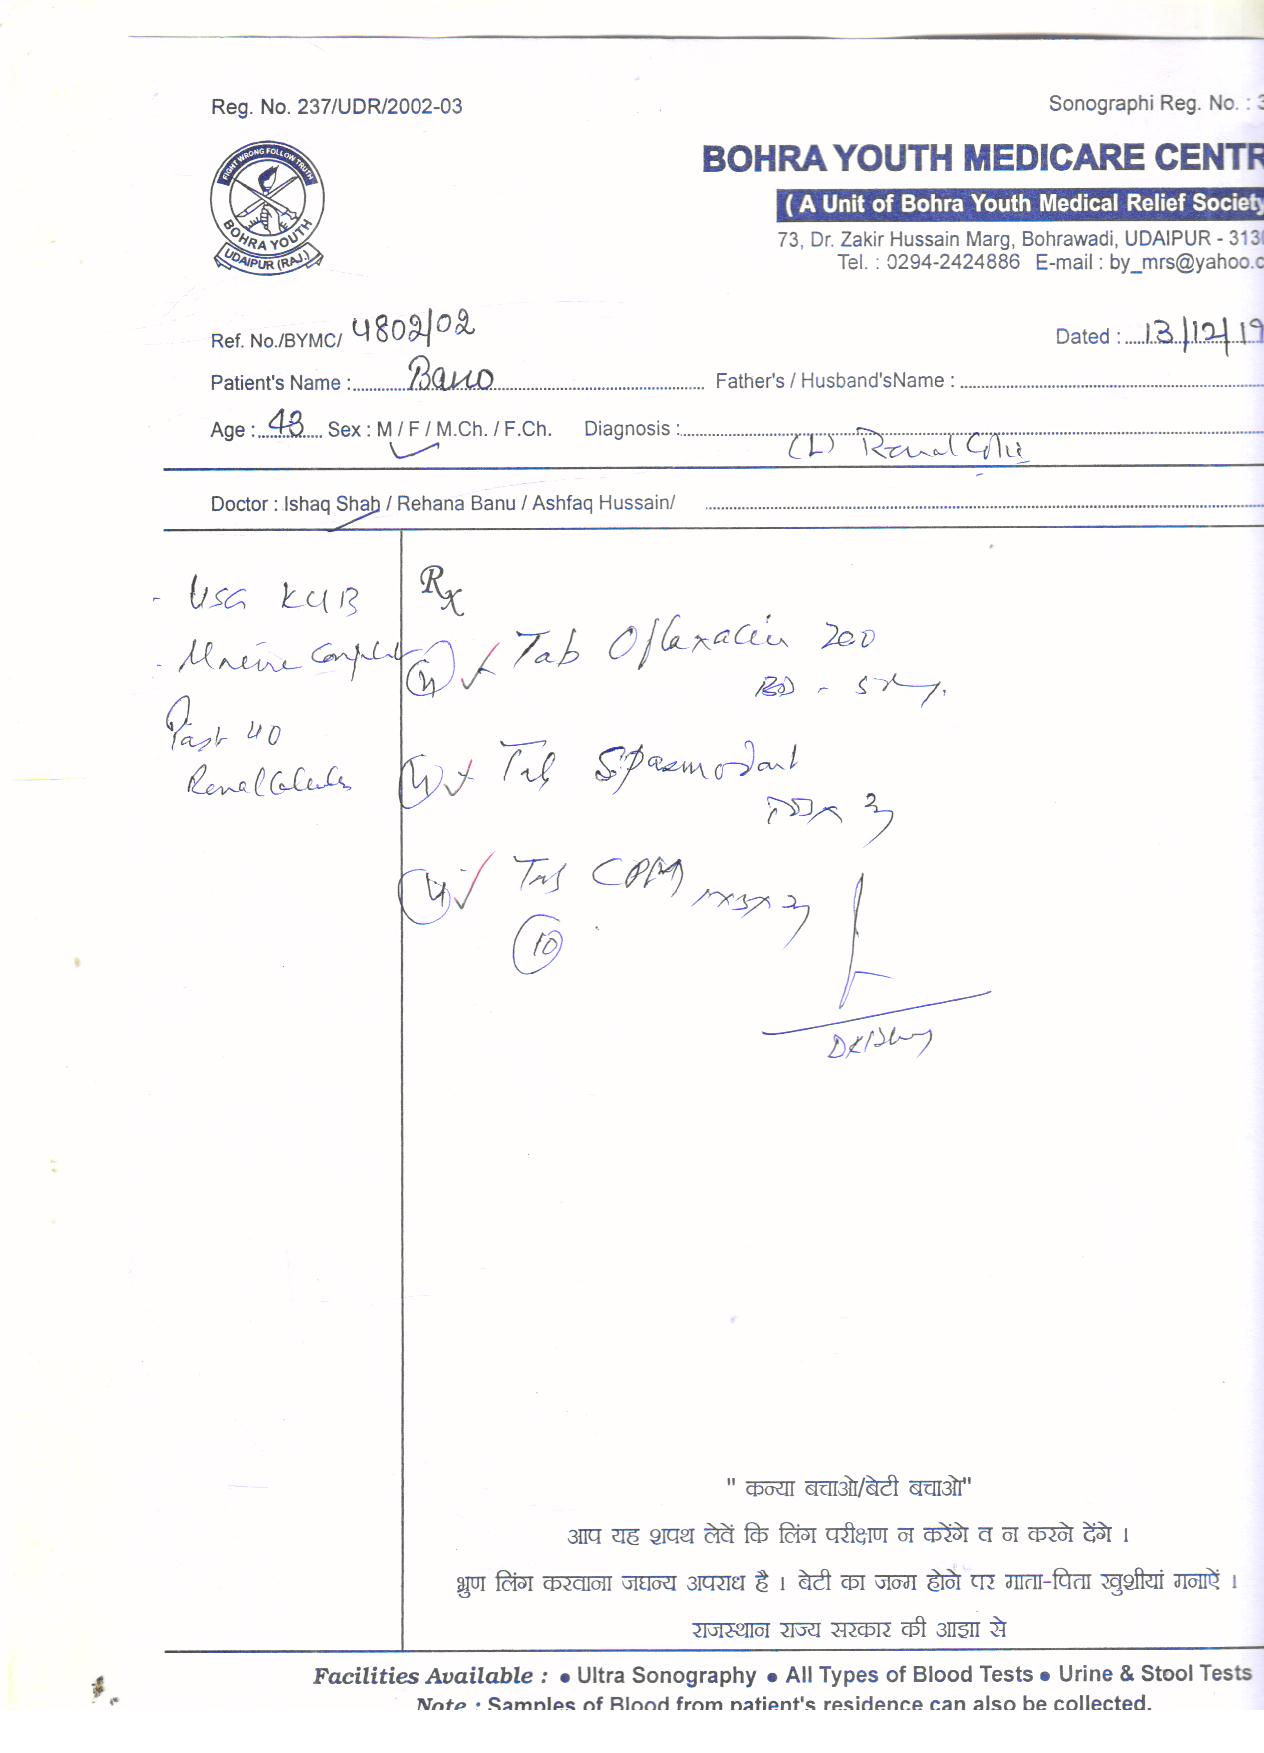 Reg. No. 237/UDR/2002-03
Sonographi Reg. No. : 3
FIGHT WRONG FOLLOW TRUTH
BOHRA YOUTH
UDAIPUR (RAJ.)
BOHRA YOUTH MEDICARE CENTR
( A Unit of Bohra Youth Medical Relief Society
73, Dr. Zakir Hussain Marg, Bohrawadi, UDAIPUR - 313
Tel. : 0294-2424886 E-mail : by_mrs@yahoo.c
Ref. No./BYMC/ 4802/02
Dated : 13/12/19
Patient's Name : Bano
Father's / Husband'sName :
Age : 43 Sex : M / F / M.Ch. / F.Ch. Diagnosis : (L) Renal Colic
Doctor : Ishaq Shah / Rehana Banu / Ashfaq Hussain/
- USG KUB
- Urine Complete
Past H/O
Renal Calculus
Rx
Tab Ofloxacin 200
BD - 5
Tab
Tab CPM 1x3x3
10
" कन्या बचाओ/बेटी बचाओ"
आप यह शपथ लेवें कि लिंग परीक्षण न करेंगे व न करने देंगे ।
भ्रुण लिंग करवाना जघन्य अपराध है । बेटी का जन्म होने पर माता-पिता खुशीयां मनाऐं ।
राजस्थान राज्य सरकार की आज्ञा से
Facilities Available : ● Ultra Sonography ● All Types of Blood Tests ● Urine & Stool Tests
Note : Samples of Blood from patient's residence can also be collected.